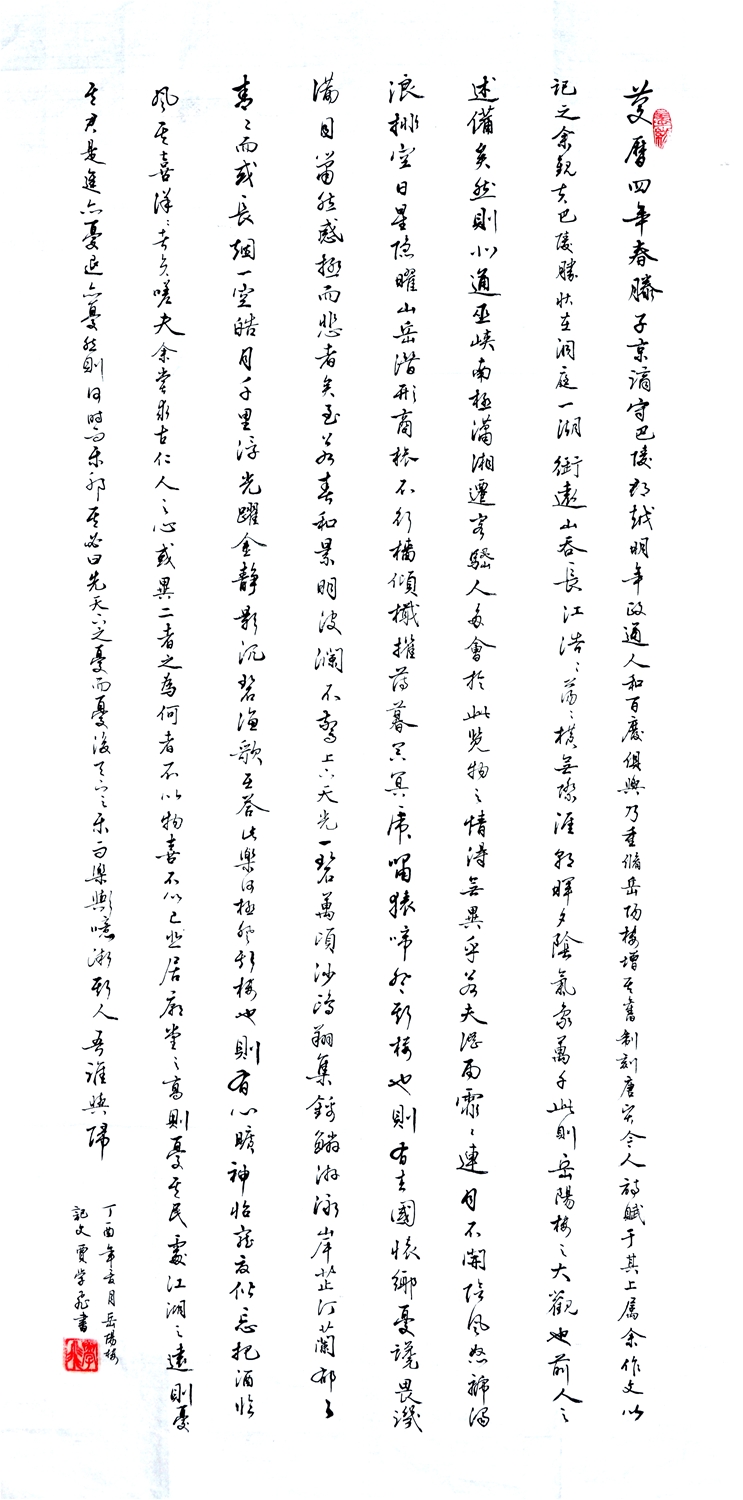 慶曆四年春滕子京謫守巴陵郡越明年政通人和百廢俱興乃重脩岳陽樓增其舊制刻唐賢今人詩賦于其上屬余作文以
記之余觀夫巴陵勝狀在洞庭一湖銜遠山吞長江浩〻蕩〻橫無際涯朝暉夕陰氣象萬千此則岳陽樓之大觀也前人之
述備矣然則北通巫峽南極瀟湘遷客騷人多會於此覽物之情得無異乎若夫淫雨霏〻連月不開陰風怒號濁
浪排空日星隱曜山岳潛形商旅不行檣傾檝摧薄暮冥冥虎嘯猿啼登斯樓也則有去國懷鄉憂讒畏譏
滿目蕭然感極而悲者矣至若春和景明波瀾不驚上下天光一碧萬頃沙鷗翔集錦鱗游泳岸芷汀蘭郁〻
青〻而或長烟一空皓月千里浮光躍金靜影沉碧漁歌互答此樂何極登斯樓也則有心曠神怡寵辱偕忘把酒臨
風其喜洋〻者矣嗟夫余嘗求古仁人之心或異二者之為何者不以物喜不以己悲居廟堂之高則憂其民處江湖之遠則憂
其君是進亦憂退亦憂然則何時而樂耶其必曰先天下之憂而憂後天下之樂而樂歟噫微斯人吾誰與歸
丁酉年玄月岳陽樓
記文賈學飛書